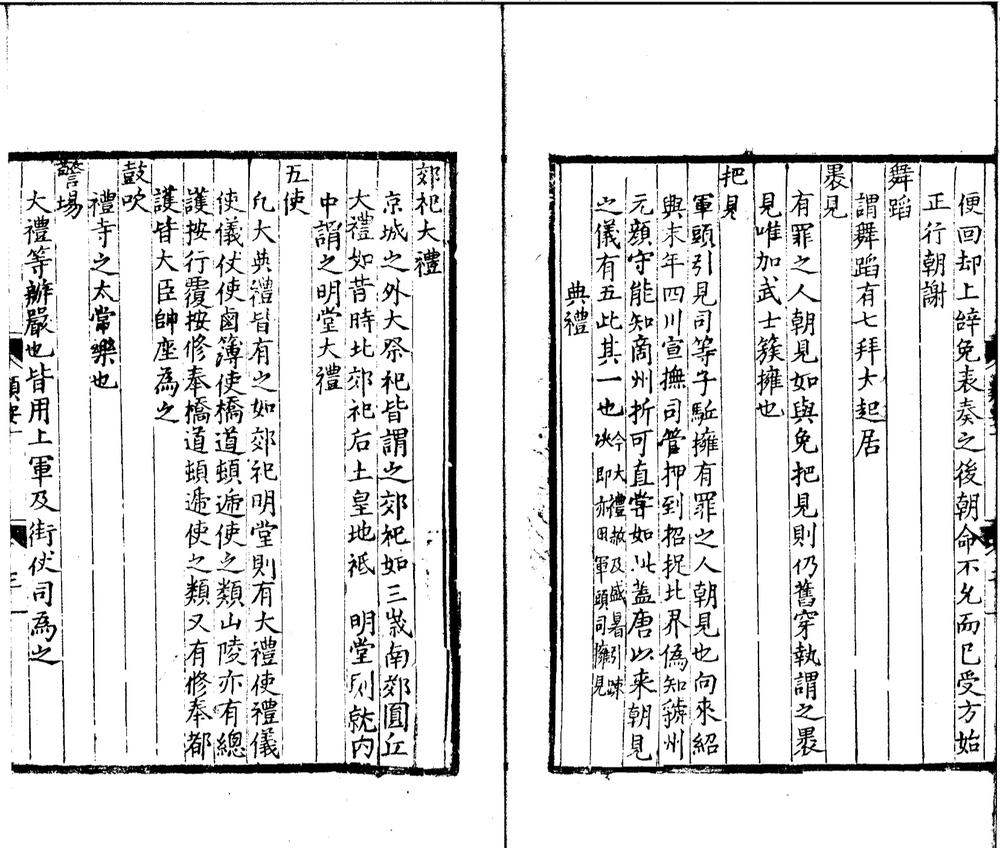 便回却上辞免表奏之後朝命不允而已受方始
正行朝謝
舞蹈
謂舞蹈有七拜大起居
褁見
有罪之人朝見如與免把見則仍舊穿執謂之褁
見唯加武士簇擁也
把見
軍頭引見司等子駈擁有罪之人朝見也向來紹
興末年四川宣撫司管押到招捉北界偽知虢州
元顔守能知商州折可直嘗如此蓋唐以來朝見
之儀有五此其一也今大禮赦及盛暑引疎
决即亦用軍頭司擁見
典禮
郊祀大禮
京城之外大祭祀皆謂之郊祀如三歲南郊圓丘
大禮如昔時北郊祀后土皇地祇 明堂則就内
中謂之明堂大禮
五使
凢大典禮皆有之如郊祀明堂則有大禮使禮儀
使儀仗使鹵簿使橋道頓逓使之類山陵亦有總
護按行覆按修奉橋道頓逓使之類又有修奉都
護皆大臣帥座為之
鼓吹
禮寺之太常樂也
警塲
大禮等辦嚴也皆用上軍及街仗司為之
三